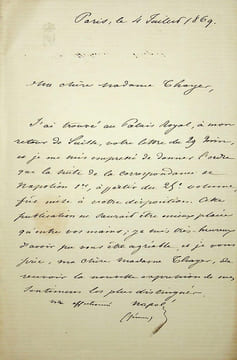 Paris, le 4 Juillet 1869.
Ma chère Madame Thayer,
J'ai trouvé au Palais Royal, à mon
retour de Suisse, votre lettre du 29 Juin,
et je me suis empressé de donner l'ordre
que la suite de la correspondance de
Napoléon 1er, à partir du 25e volume,
fût mise à votre disposition. Cette
publication ne saurait être mieux placée
qu'entre vos mains; je suis très heureux
d'avoir pu vous être agréable, et je vous
prie, ma chère Madame Thayer, de
recevoir la nouvelle expression de mes
sentiments les plus distingués.
votre affectionné Napoléon
(Jérôme)